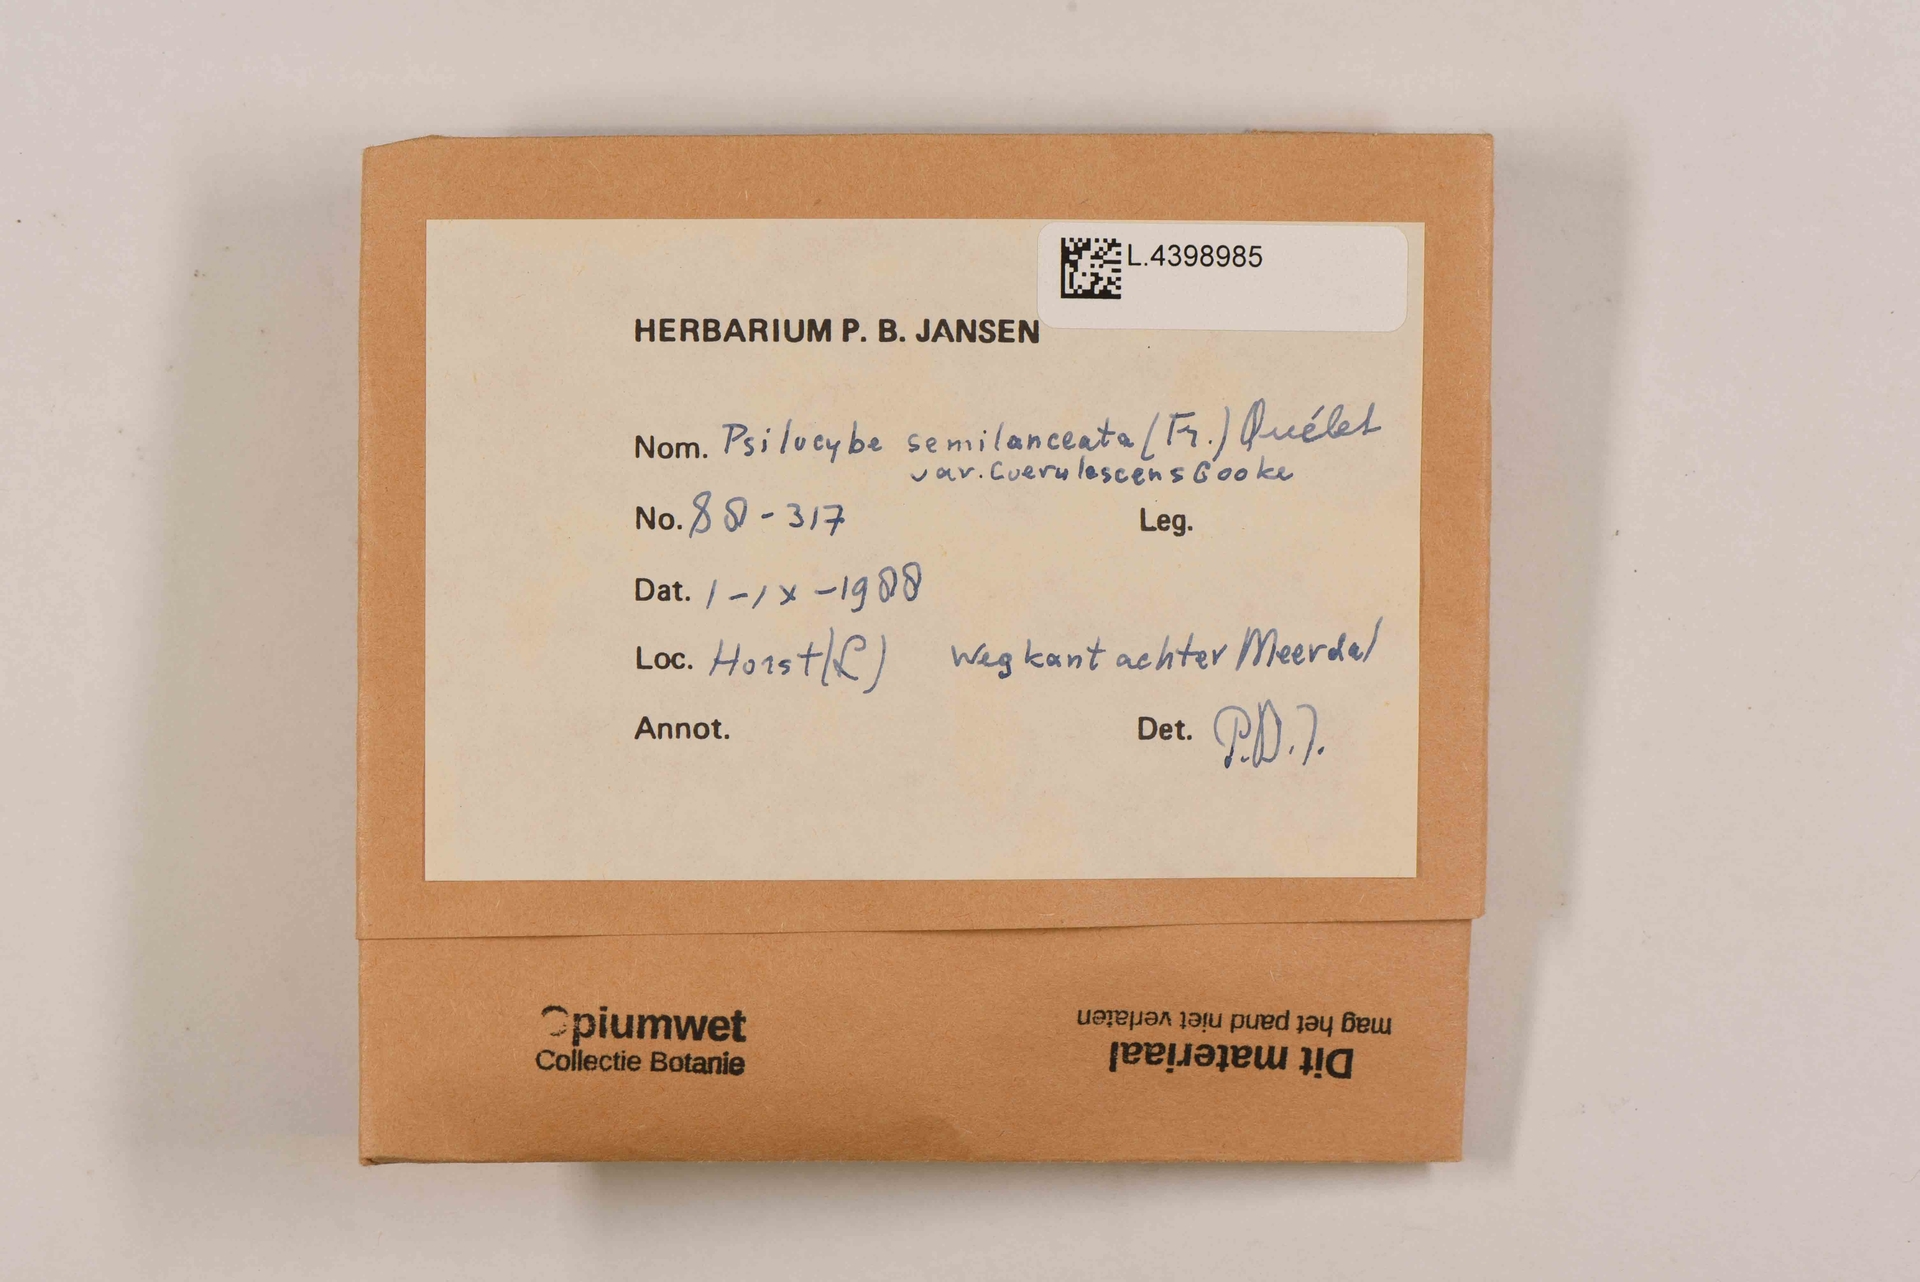 L.4398985
HERBARIUM P. B. JANSEN
Nom. Psilocybe semilanceata (Fr.) Quélet
var. Coerulescens Cooke
No. 88-317 Leg.
Dat. 1-IX-1988
Loc. Horst (L) Wegkant achter Meerdal
Annot. Det. P.B.J.
Opiumwet
Collectie Botanie
Dit materiaal
mag het pand niet verlaten